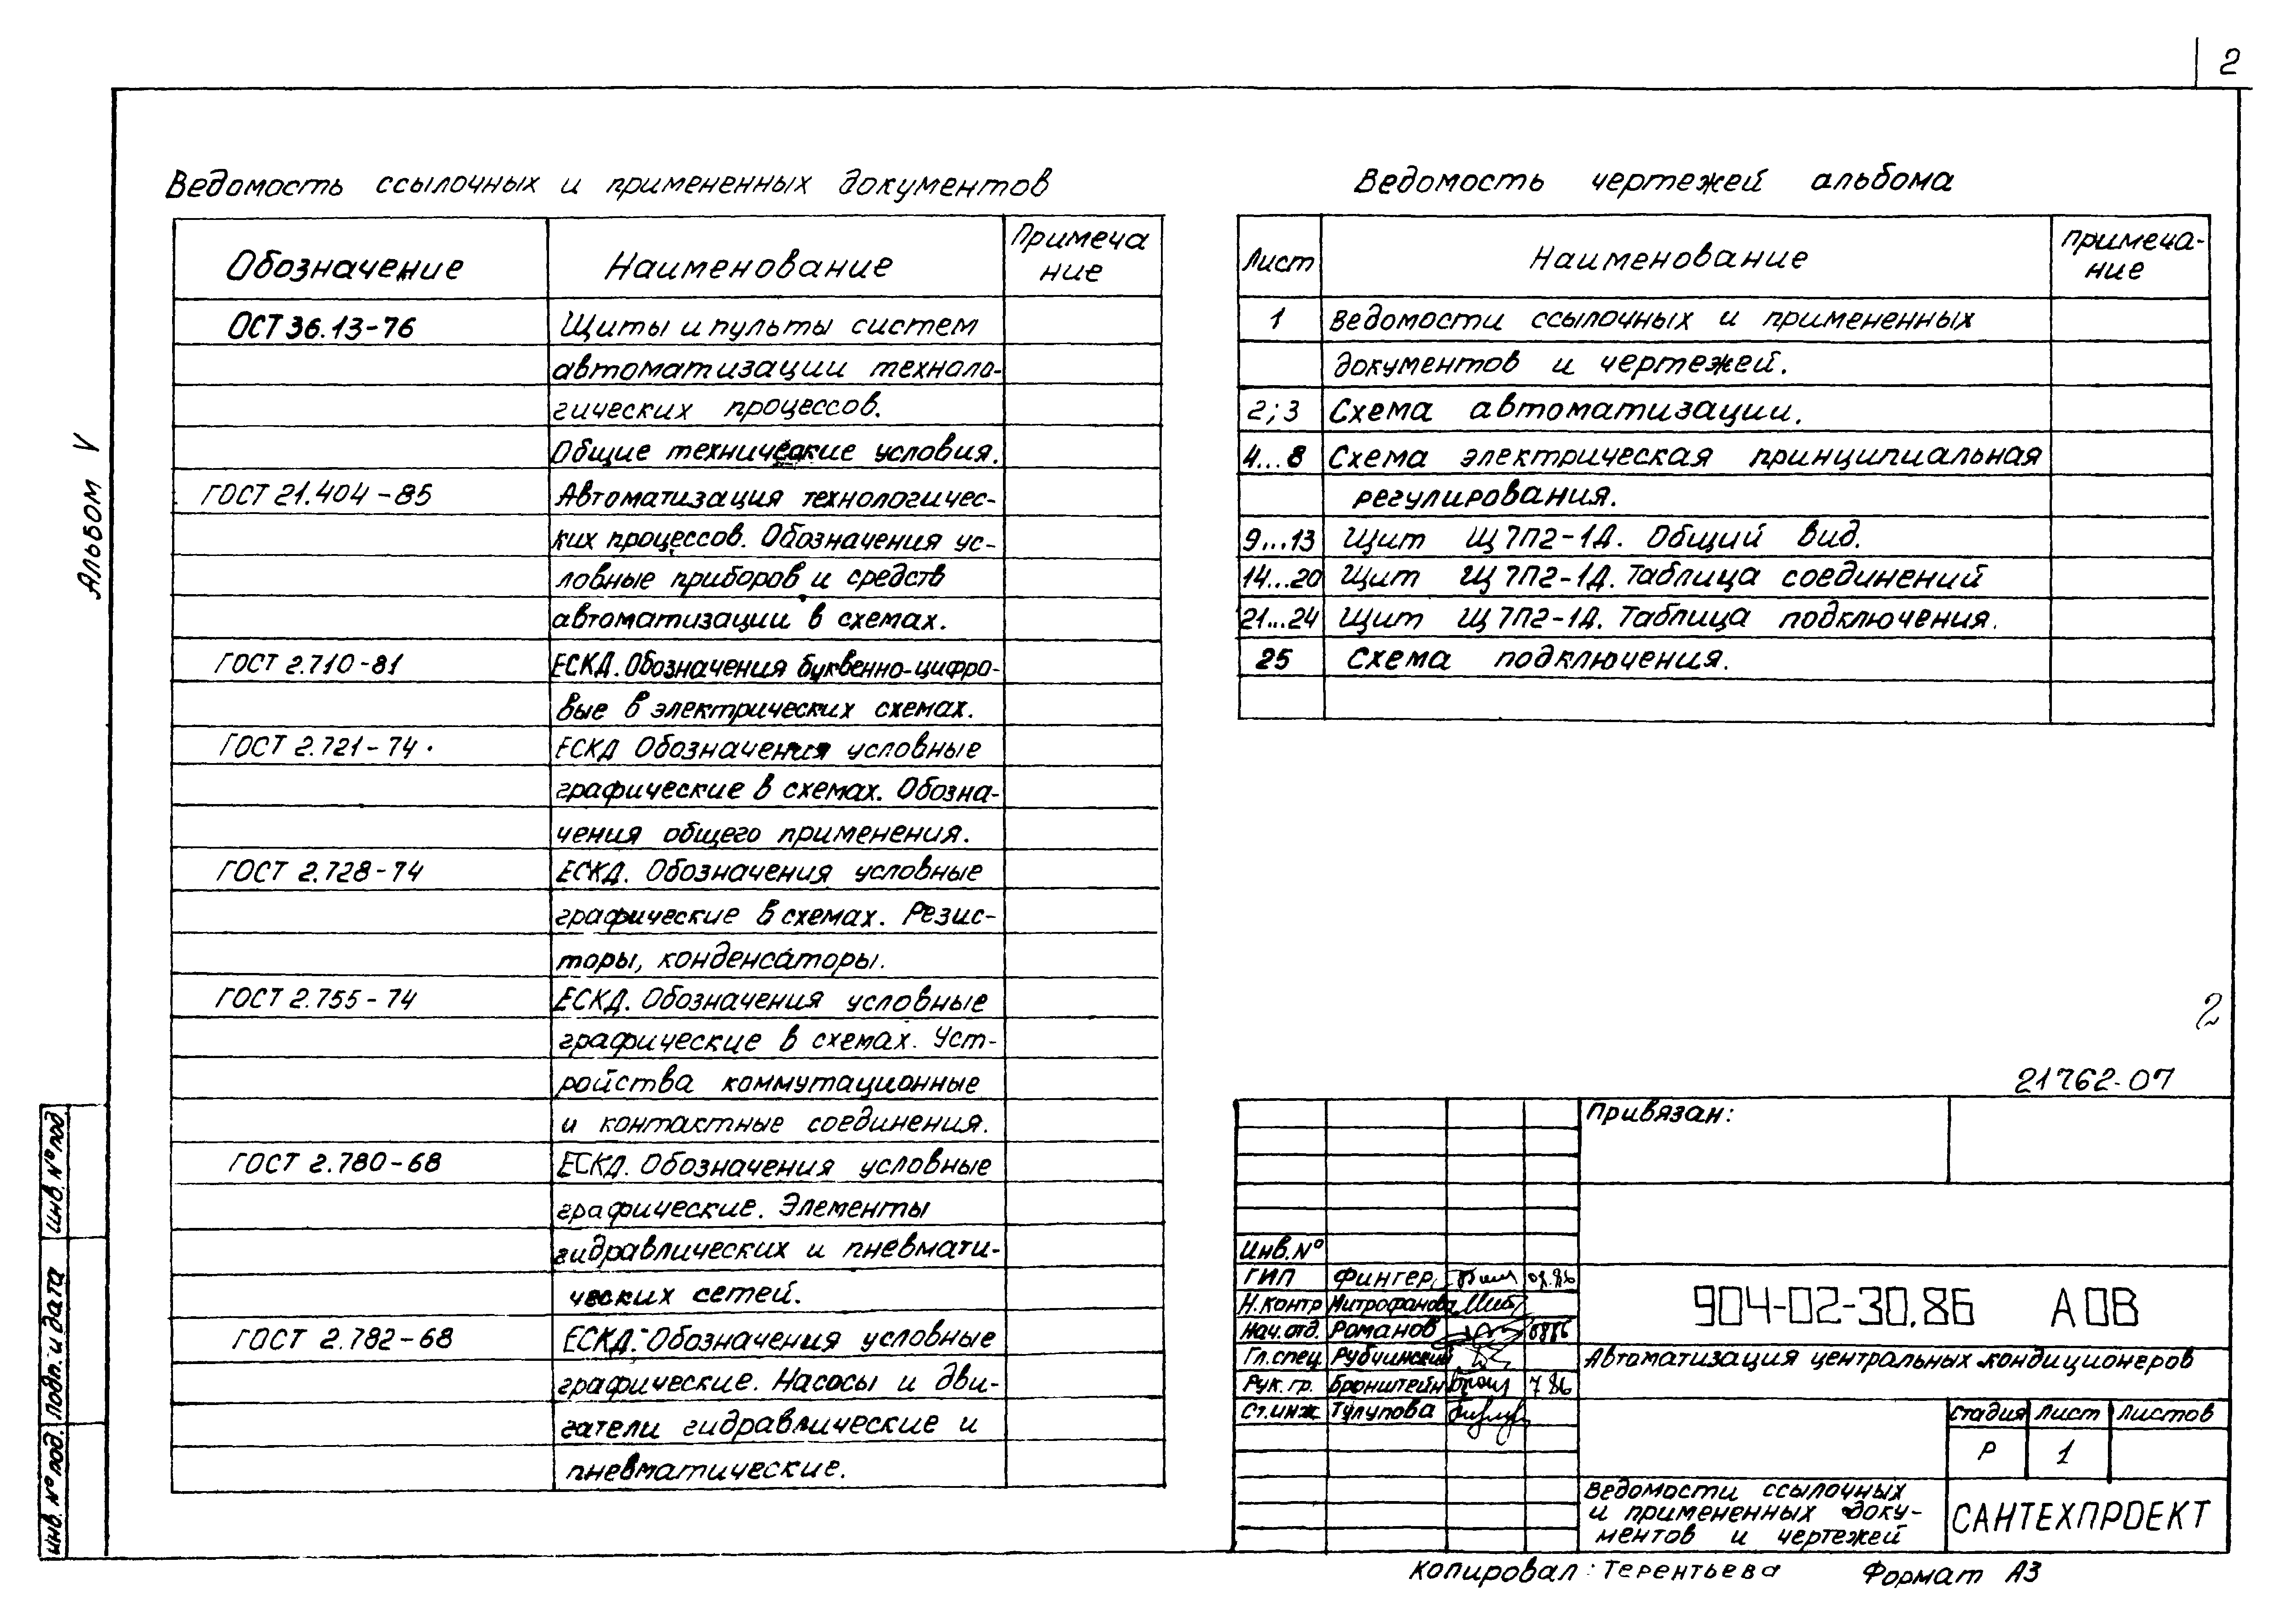 2
Альбом V
Ведомость ссылочных и примененных документов
Обозначение Наименование Примеча
ние
ОСТ 36.13-76 Щиты и пульты систем
автоматизации техноло-
гических процессов.
Общие технические условия.
ГОСТ 21.404-85 Автоматизация технологичес-
ких процессов. Обозначения ус-
ловные приборов и средств
автоматизации в схемах.
ГОСТ 2.710-81 ЕСКД. Обозначения буквенно-цифро-
вые в электрических схемах.
ГОСТ 2.721-74 ЕСКД Обозначения условные
графические в схемах. Обозна-
чения общего применения.
ГОСТ 2.728-74 ЕСКД. Обозначения условные
графические в схемах. Резис-
торы, конденсаторы.
ГОСТ 2.755-74 ЕСКД. Обозначения условные
графические в схемах. Уст-
ройства коммутационные
и контактные соединения.
ГОСТ 2.780-68 ЕСКД. Обозначения условные
графические. Элементы
гидравлических и пневмати-
ческих сетей.
ГОСТ 2.782-68 ЕСКД. Обозначения условные
графические. Насосы и дви-
гатели гидравлические и
пневматические.
Ведомость чертежей альбома
Лист Наименование Примеча-
ние
1 Ведомости ссылочных и примененных
документов и чертежей.
2;3 Схема автоматизации.
4...8 Схема электрическая принципиальная
регулирования.
9...13 Щит Щ7П2-1Д. Общий вид.
14...20 Щит Щ7П2-1Д. Таблица соединений
21...24 Щит Щ7П2-1Д. Таблица подключения.
25 Схема подключения.
2
21762-07
Привязан:
Инв.№
ГИП Фингер
Н.контр Митрофанова
Нач.отд. Романов
Гл.спец Рубчинский
Рук.гр. Бронштейн 7 86
Ст.инж Тулупова
904-02-30.86 АОВ
Автоматизация центральных кондиционеров
Стадия Лист Листов
Р 1
Ведомости ссылочных
и примененных доку-
ментов и чертежей
САНТЕХПРОЕКТ
Копировал: Терентьева Формат А3
Инв.№ под. Подп. и дата Инв.№ под